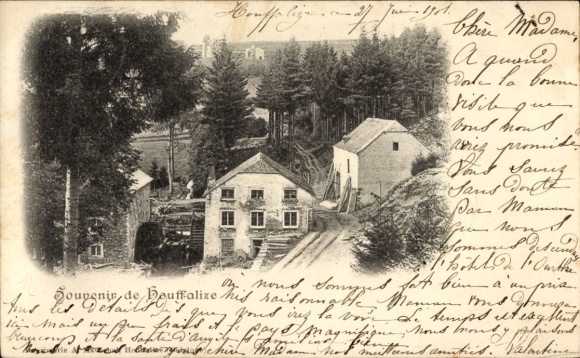 Houffalize ce 27 Juin 1901
Chère Madame,
A quand
donc la bonne
visite que
vous nous
avez promise.
Vous savez
sans doute
par Maman
que nous
sommes descendus
à l'hôtel de l'Ourthe
Souvenir de Houffalize
où nous sommes fort bien à un prix
très raisonnable Maman vous donnera
tous les détails dès que vous irez la voir. Le temps est excellent
ici mais un peu froid et le pays magnifique. Nous nous y plaisons
beaucoup et la santé d'
chère Madame nos meilleures amitiés. Valentine